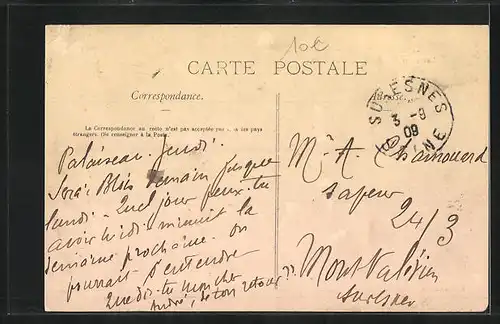 10c
CARTE POSTALE
Correspondance.
Adresse
La Correspondance au recto n'est pas acceptée par les pays
étrangers. (Se renseigner à la Poste.)
SURESNES
3 - 9
09
SEINE
Palaiseau. Jeudi.
Serai Blois demain jusque
lundi. Quel jour peux-tu
avoir midi minuit la
semaine prochaine. On
pourrait s'entendre
Que dis-tu mon che
André, de ton retour ??
Mr. A.
sapeur
24/3
Mont Valérien
Suresnes